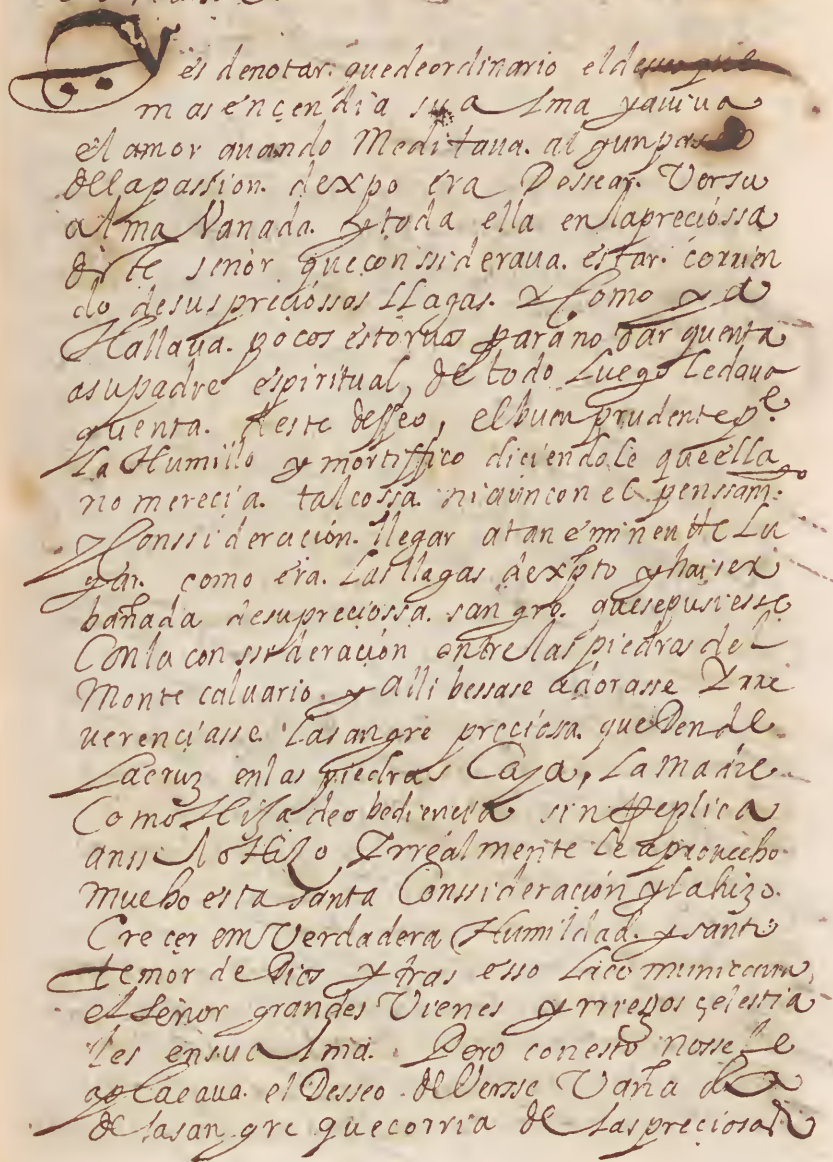 es denotar. quedeordinario el
mas ençendia su Alma yauiua
el amor quando Meditaua. algun passo
de la passion. dexpo era Dessear. Versu
alma Vanada. y toda ella en la preciossa
deste señor que conssideraua. estar. corrien
do desus preciossos LLagas. Y Como ya
Hallaua. pocos estoruos para no dar quenta
asupadre espiritual, de todo Luego Ledaua
quenta. deste desseo, el buen prudente pe
La Humillo y mortiffico diciendole que ella
no merecia. tal cossa. ni aun con el penssamto
Y Conssideracion. llegar atan eminente Lu
gar. como era. Las llagas de xpto y ha ser
bañada desupreciossa. sangre. que se pusiesse
Con la conssideracion entre las piedras del
Monte caluario. y alli bessase adorasse Y rre
uerenciasse. La sangre preciosa. que Dende
La cruz en las piedras Caja, La madre
Como Hija de obediencia sin Replica
anssi lo Hizo Y rrealmente le aprouecho
mucho esta santa Conssideracion y la hizo.
Crecer em Verdadera Humildad. y santo
temor de Dios y tras esso La comunicaua
el señor grandes Vienes y rregalos çelestia
les en su Alma. Pero con esto nosse le
aplacaua. el Desseo. de Versse Vañada
de la sangre que corria de las preciosas